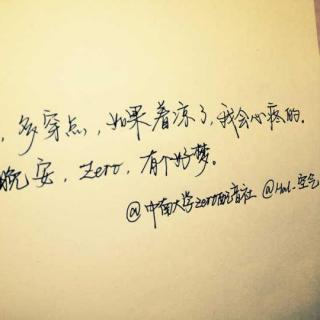 ，多穿点，如果着凉了，我会心疼的．
晚安．Zero，有个好梦。
@中南大学zero配音社 @Hal-空气